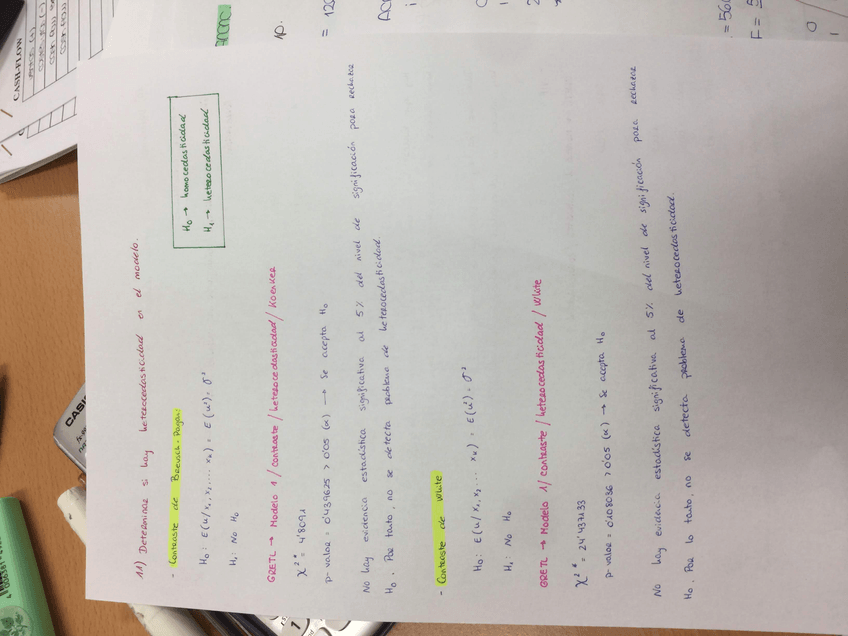 11) Determinar si hay heterocedasticidad en el modelo.
H0 → homocedasticidad
H1 → heterocedasticidad
- Contraste de Breusch-Pagan:
H0: E(u/x1, x2, ... xk) = E(u²) = σ²
H1: No H0
GRETL → Modelo 1 / contraste / heterocedasticidad / Koenker
χ²* = 4'8091
p-valor = 0'439625 > 0'05 (α) → Se acepta H0
No hay evidencia estadística significativa al 5% del nivel de significación para rechazar
H0. Por tanto, no se detecta problema de heterocedasticidad.
- Contraste de White
H0: E(u/x1, x2, ... xk) = E(u²) = σ²
H1: No H0
GRETL → Modelo 1 / contraste / heterocedasticidad / White
χ²* = 24'437133
p-valor = 0'108036 > 0'05 (α) → Se acepta H0
No hay evidencia estadística significativa al 5% del nivel de significación para rechazar
H0. Por lo tanto, no se detecta problema de heterocedasticidad.
CASH-FLOW
CASIO